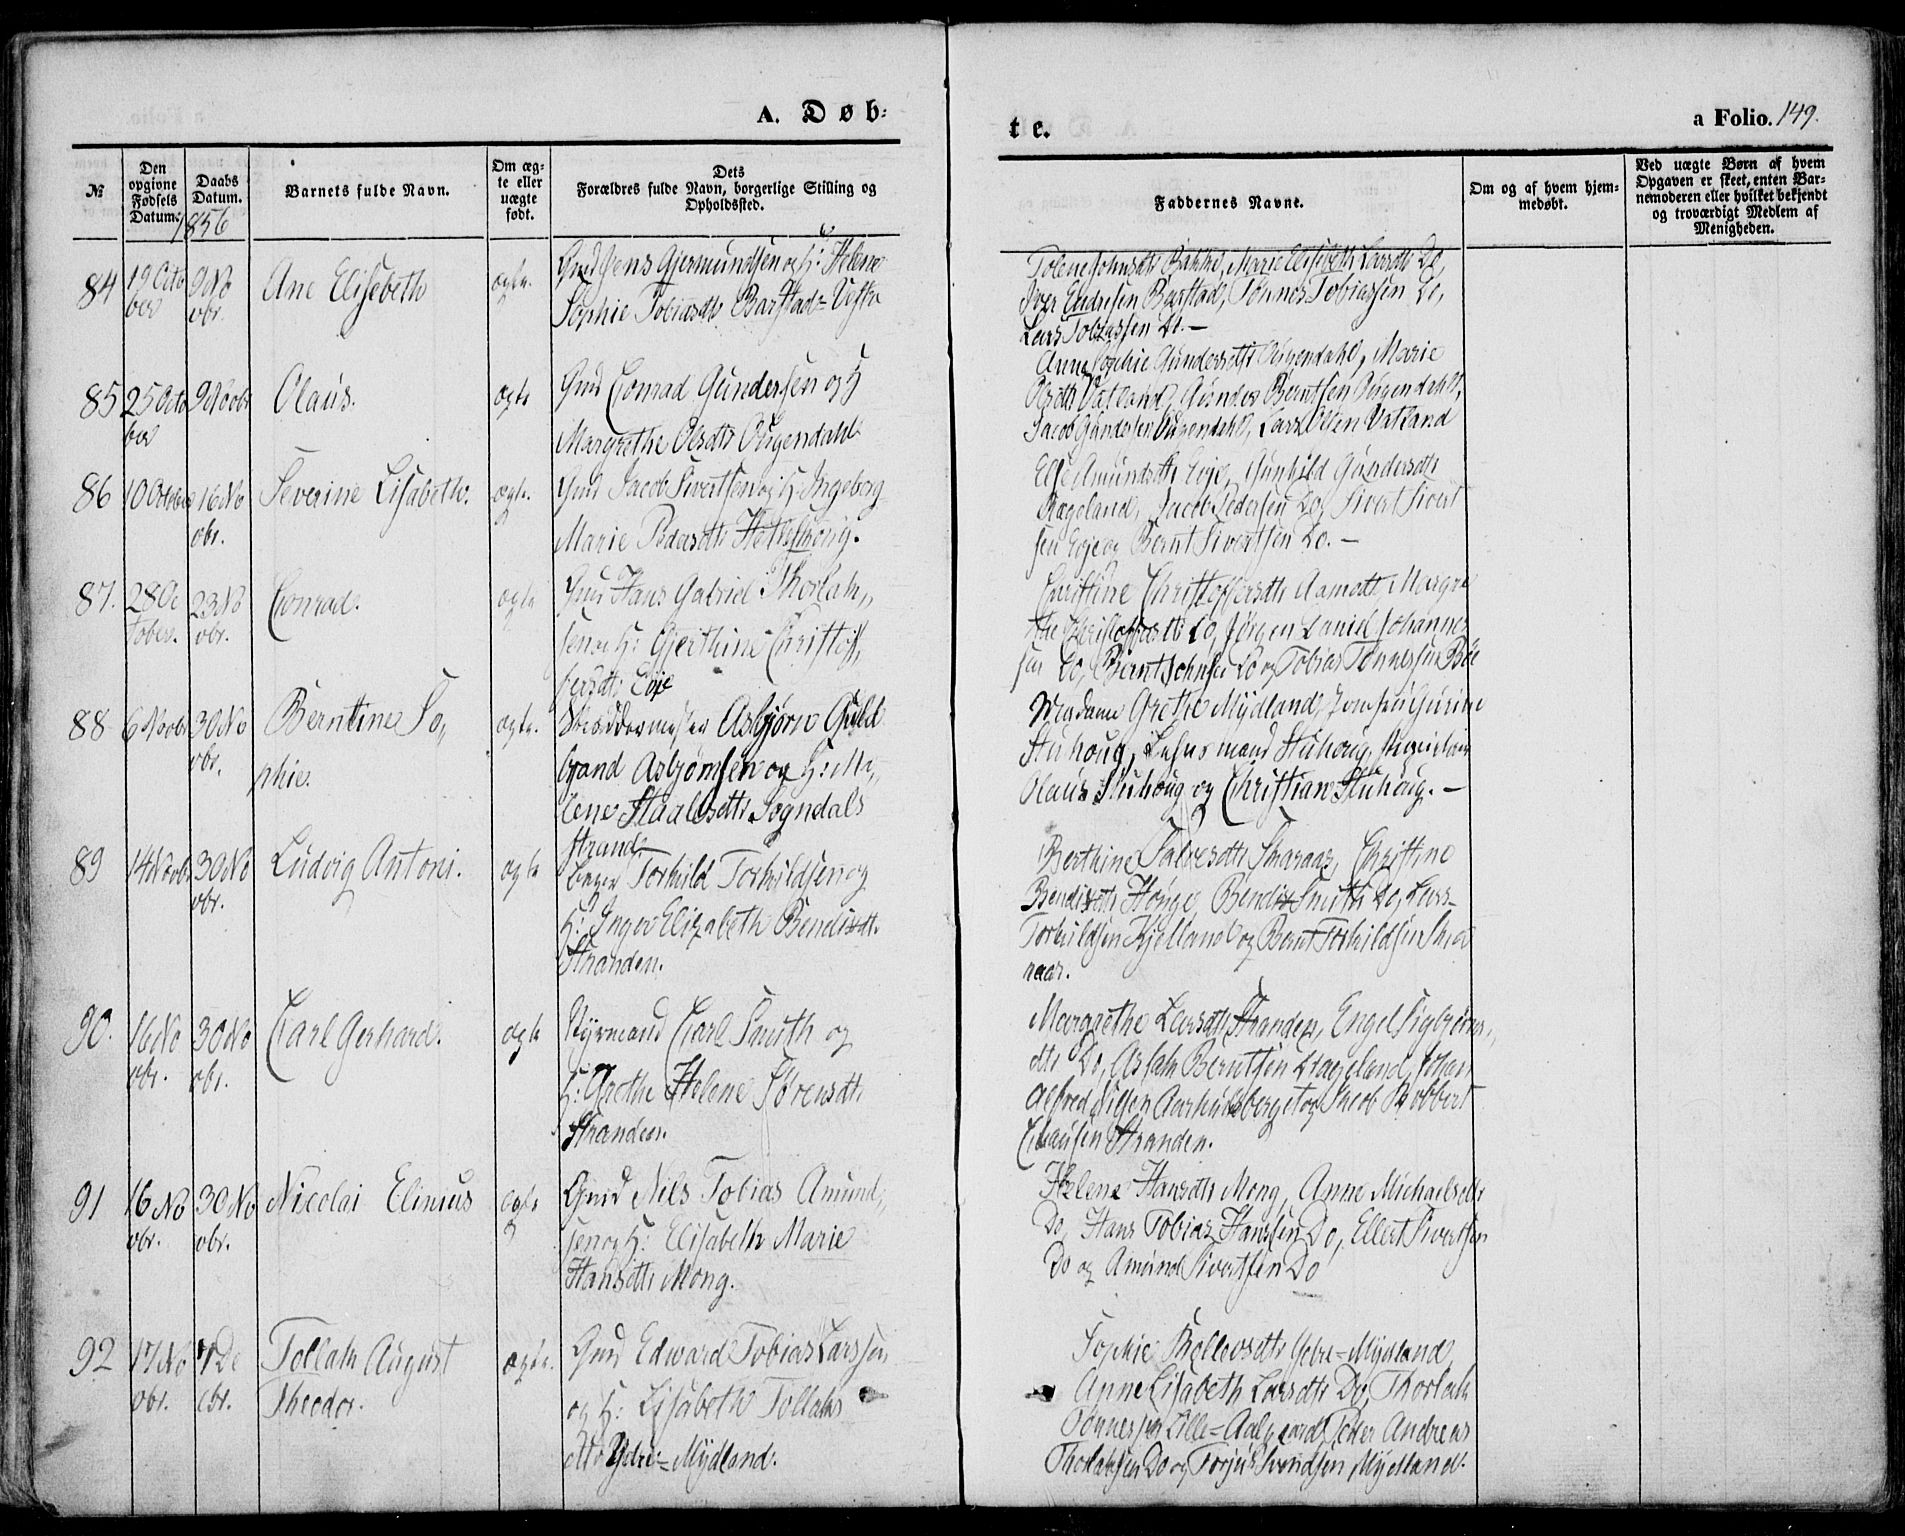 A. Døb:
te.
a Folio. 149.
№
Den
opgivne
Fødsels
Datum.
Daabs
Datum.
1856
Barnets fulde Navn.
Om æg-
te eller
uægte
født.
Dets
Forældres fulde Navn, borgerlige Stilling og
Opholdssted.
Faddernes Navne.
Om og af hvem hjem-
medøbt.
Ved uægte Børn af hvem
Opgaven er skeet, enten Bar-
nemoderen eller hvilket bekjendt
og troværdigt Medlem af
Menigheden.
84
19 Octo
ber
9 No
vbr.
Ane Elisebeth
ægte.
Gmd Jens Gjermundsen og H: Helene
Sophie Tobiasdtr Barstad= Vestre
Tolene Johnsdtr Bakke, Marie Elisebeth Larsdtr Do,
Iver Endresen Barstad, Tønnes Tobiassen Do,
Lars Tobiassen Do. —
85
25 Octo
ber
9 Novbr
Olaus.
ægte
Gmd Conrad Gundersen og H
Margrethe Olsdtr Ougendahl
Anne Sophie Gundersdtr Ougendahl, Marie
Olsdtr Vatland, Gunder Berntsen Ougendahl,
Jacob Gundersen Ougendahl, Lars Olsen Vatland
86
10 October
16 No
vbr.
Severine Lisabeth.
ægte.
Gmd Jacob Sivertsen og H: Ingeborg
Marie Pedersdtr
Else Amundsdtr Eeje, Gunhild Gundersdtr
Rageland, Jacob Pedersen Do, Sivert Sivert
sen Eeje og Bernt Sivertsen Do. —
87.
28 Oc
tober.
23 No
vbr.
Conrad.
ægte
Gmd Hans Gabriel Thorlak„
sen og H: Gjerthine Christof„
fersdtr Eeje
Christine Christoffersdtr Aamodt, Margre
the Christoffersdtr Do, Jørgen Daniel Johannes
sen Do, Bernt Johnsen Do og Tobias Tønnessen Bøe
88
6 Novbr
30 No
vbr.
Berntine So„
phie.
ægte.
Skræddermester Asbjørn Guld
brand Asbjørnsen og H: Ma„
lene Staalesdtr Sogndals
strand.
Madame Grethe Mydland, Jomfru Gurine
Stuhoug, Lehnsmand Stuhoug,
Olaus Stuhoug og Christian Stuhoug. —
89
14 Novbr
30 No
vbr.
Ludvig Antoni.
ægte
Torkild Torkildsen og
H: Inger Elizabeth Bendixdtr.
Stranden.
Berthine Salvesdtr Snaraas, Christine
Bendixdtr Houge, Bendix Smith Do, Lars
Torkildsen Kjelland og Bernt Torkildsen Sna
raas.
90.
16 No
vbr.
30 No
vbr.
Carl Gerhard.
ægte
Styrmand Carl Smith og
H: Grethe Helene Sørensdtr
Stranden.
Margrethe Larsdtr Stranden, Engel Sigbjørns„
dtr Do, Aslak Berntsen Rageland, Johan
Alfred Nilsen og Jacob Robbert
Clausen Stranden.
91
16 No
vbr.
30 No
vbr.
Nicolai Elinius
ægte
Gmd Nils Tobias Amund„
sen og H: Elisabeth Marie
Hansdtr Mong.
Helene Hansdtr Mong, Anne Michaelsdtr
Do, Hans Tobias Hansen Do, Ellert Sivertsen
Do og Amund Sivertsen Do
92
17 No
vbr.
7 De
cbr.
Tollak August
Theodor.
ægte.
Gmd Edward Tobias Larssen
og H: Lisabeth Tollaks
datter Ydre= Mydland.
Sophie Thollevsdtr Ydre= Mydland,
Anne Lisabeth Larsdtr Do, Thorlak
Tønnessen Lille= Aalgaard, Peder Andreas
Thorlaksen Do og Torjus Svendsen Mydland.